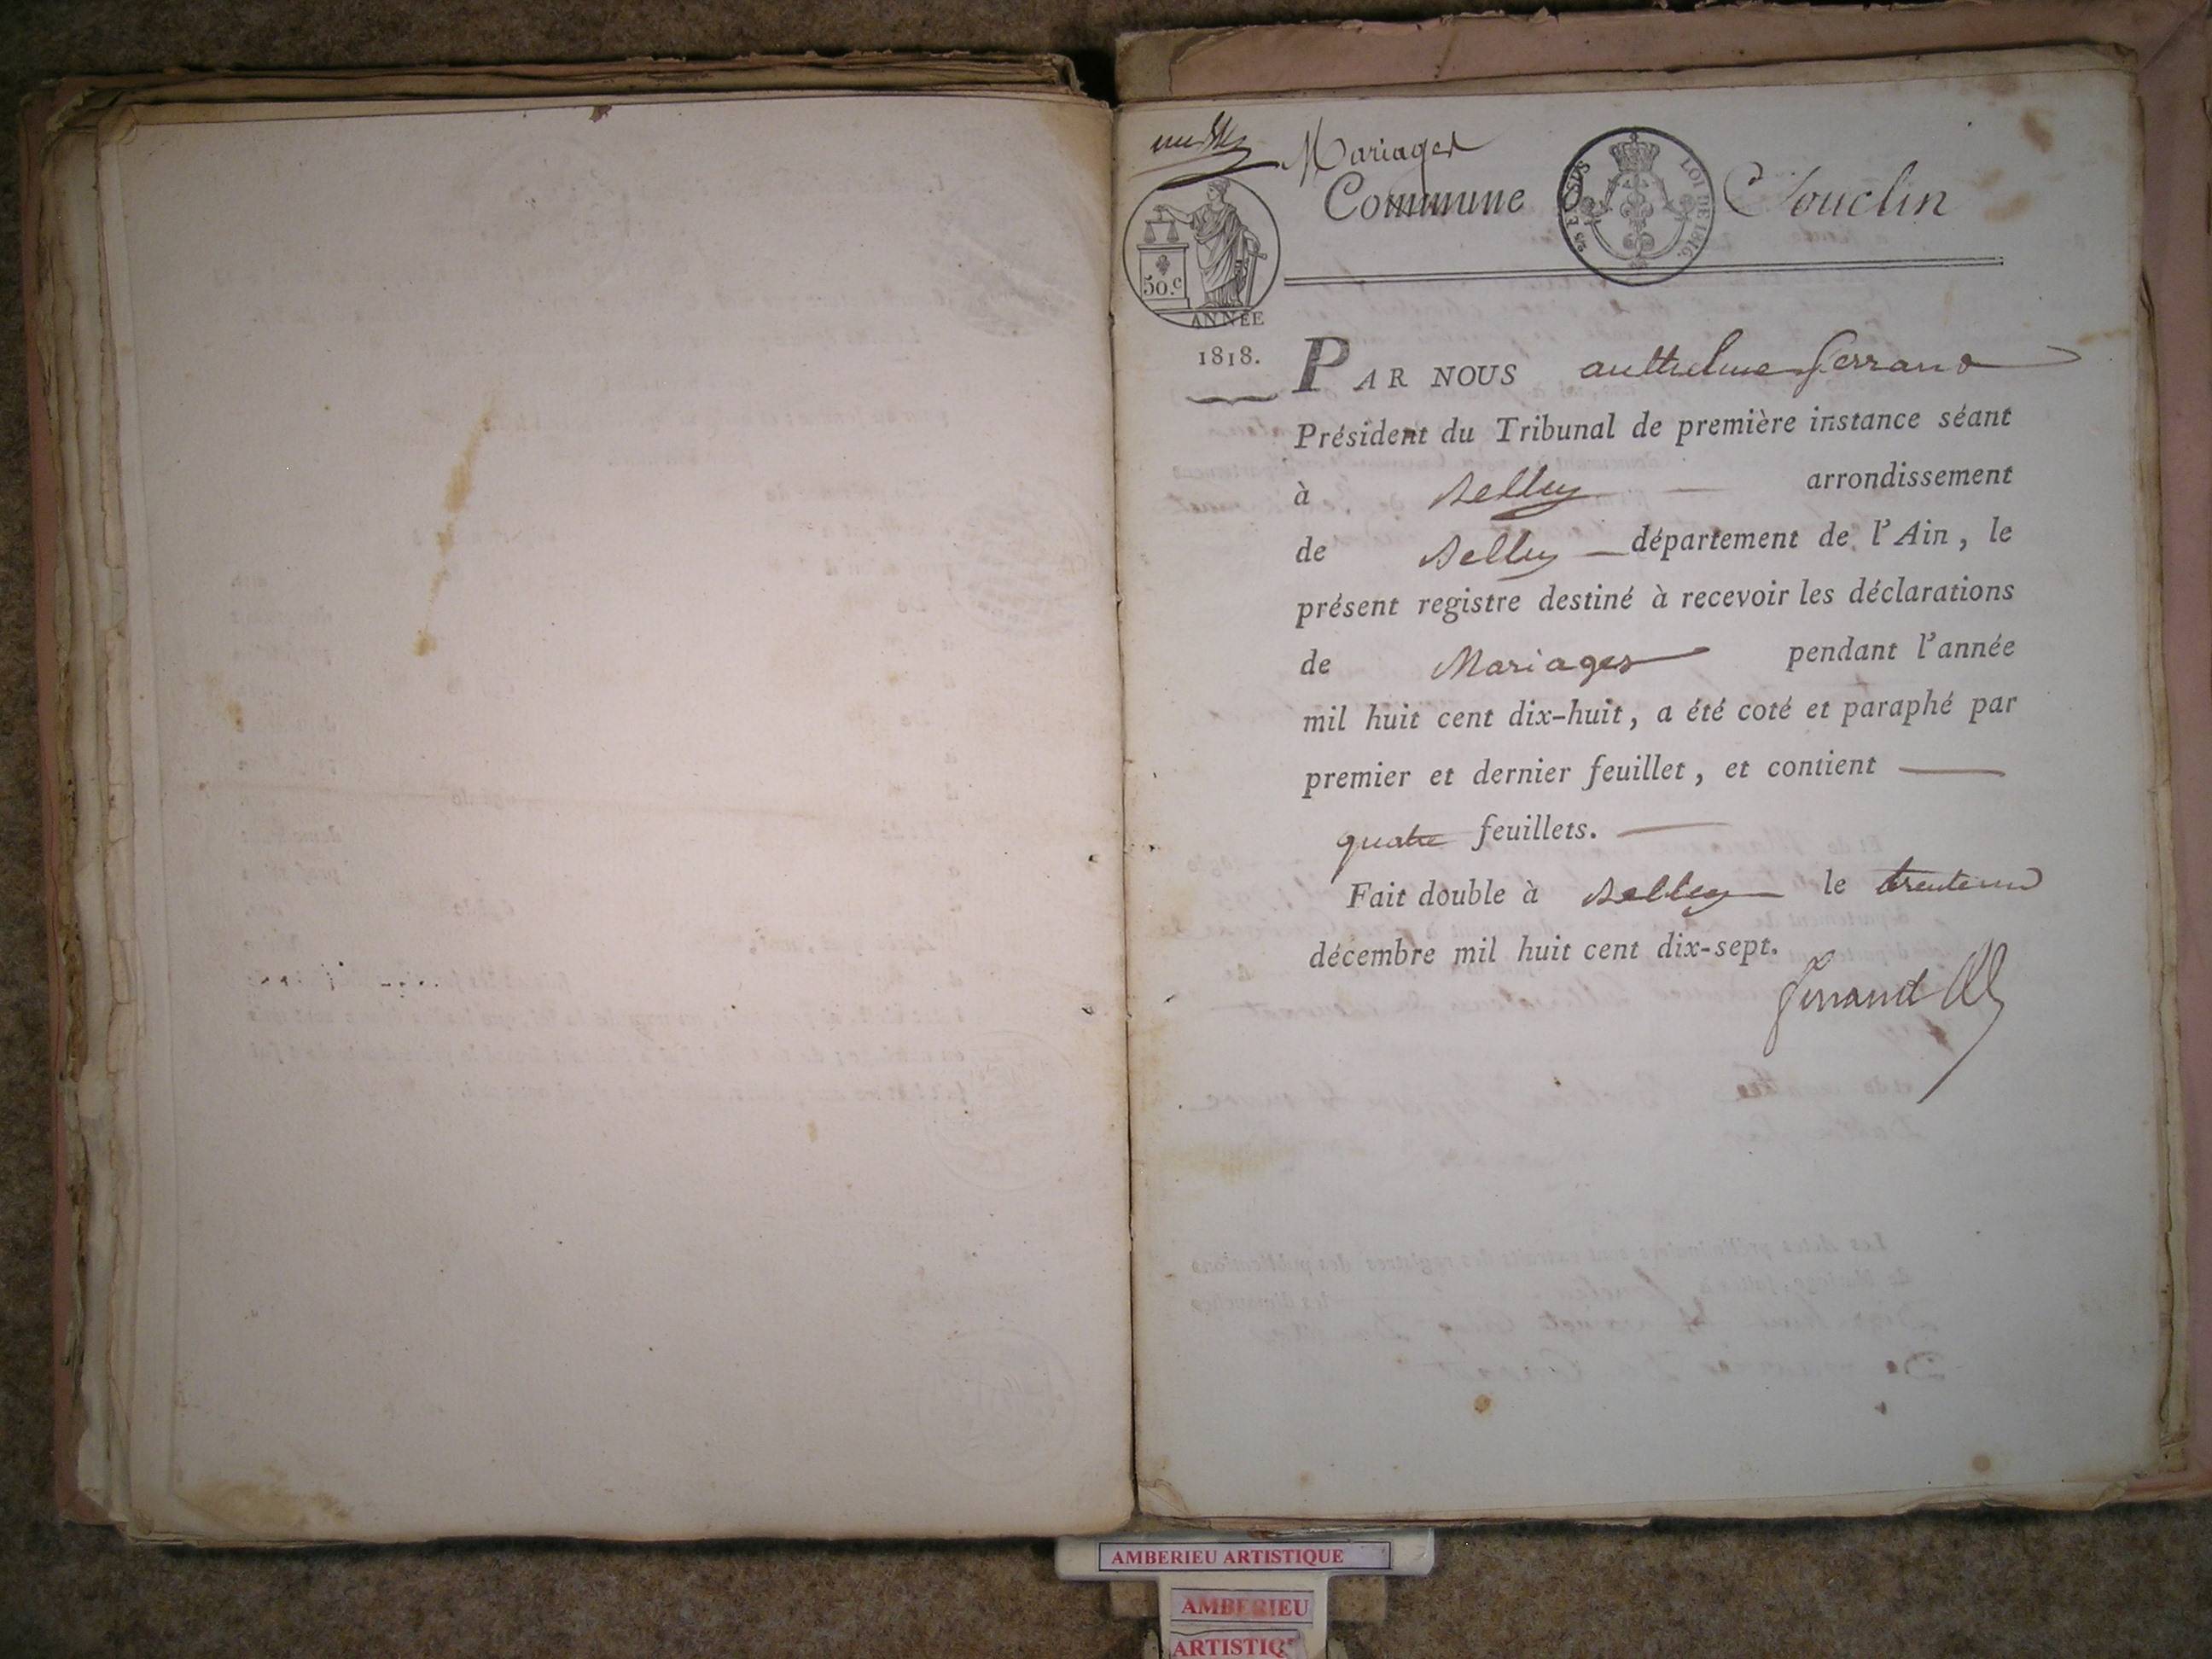 Mariages
Commune de Souclin
2/5 EN SUS
LOI DE 1816.
50.c
ANNÉE
1818.
PAR NOUS anthelme ferrand
Président du Tribunal de première instance séant
à Belley arrondissement
de Belley département de l'Ain, le
présent registre destiné à recevoir les déclarations
de Mariages pendant l'année
mil huit cent dix-huit, a été coté et paraphé par
premier et dernier feuillet, et contient
quatre feuillets.
Fait double à Belley le trente un
décembre mil huit cent dix-sept.
ferrand
AMBERIEU ARTISTIQUE
AMBERIEU
ARTISTIQ